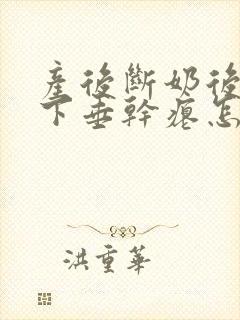 產後斷奶後
下垂幹癟怎
洪重華